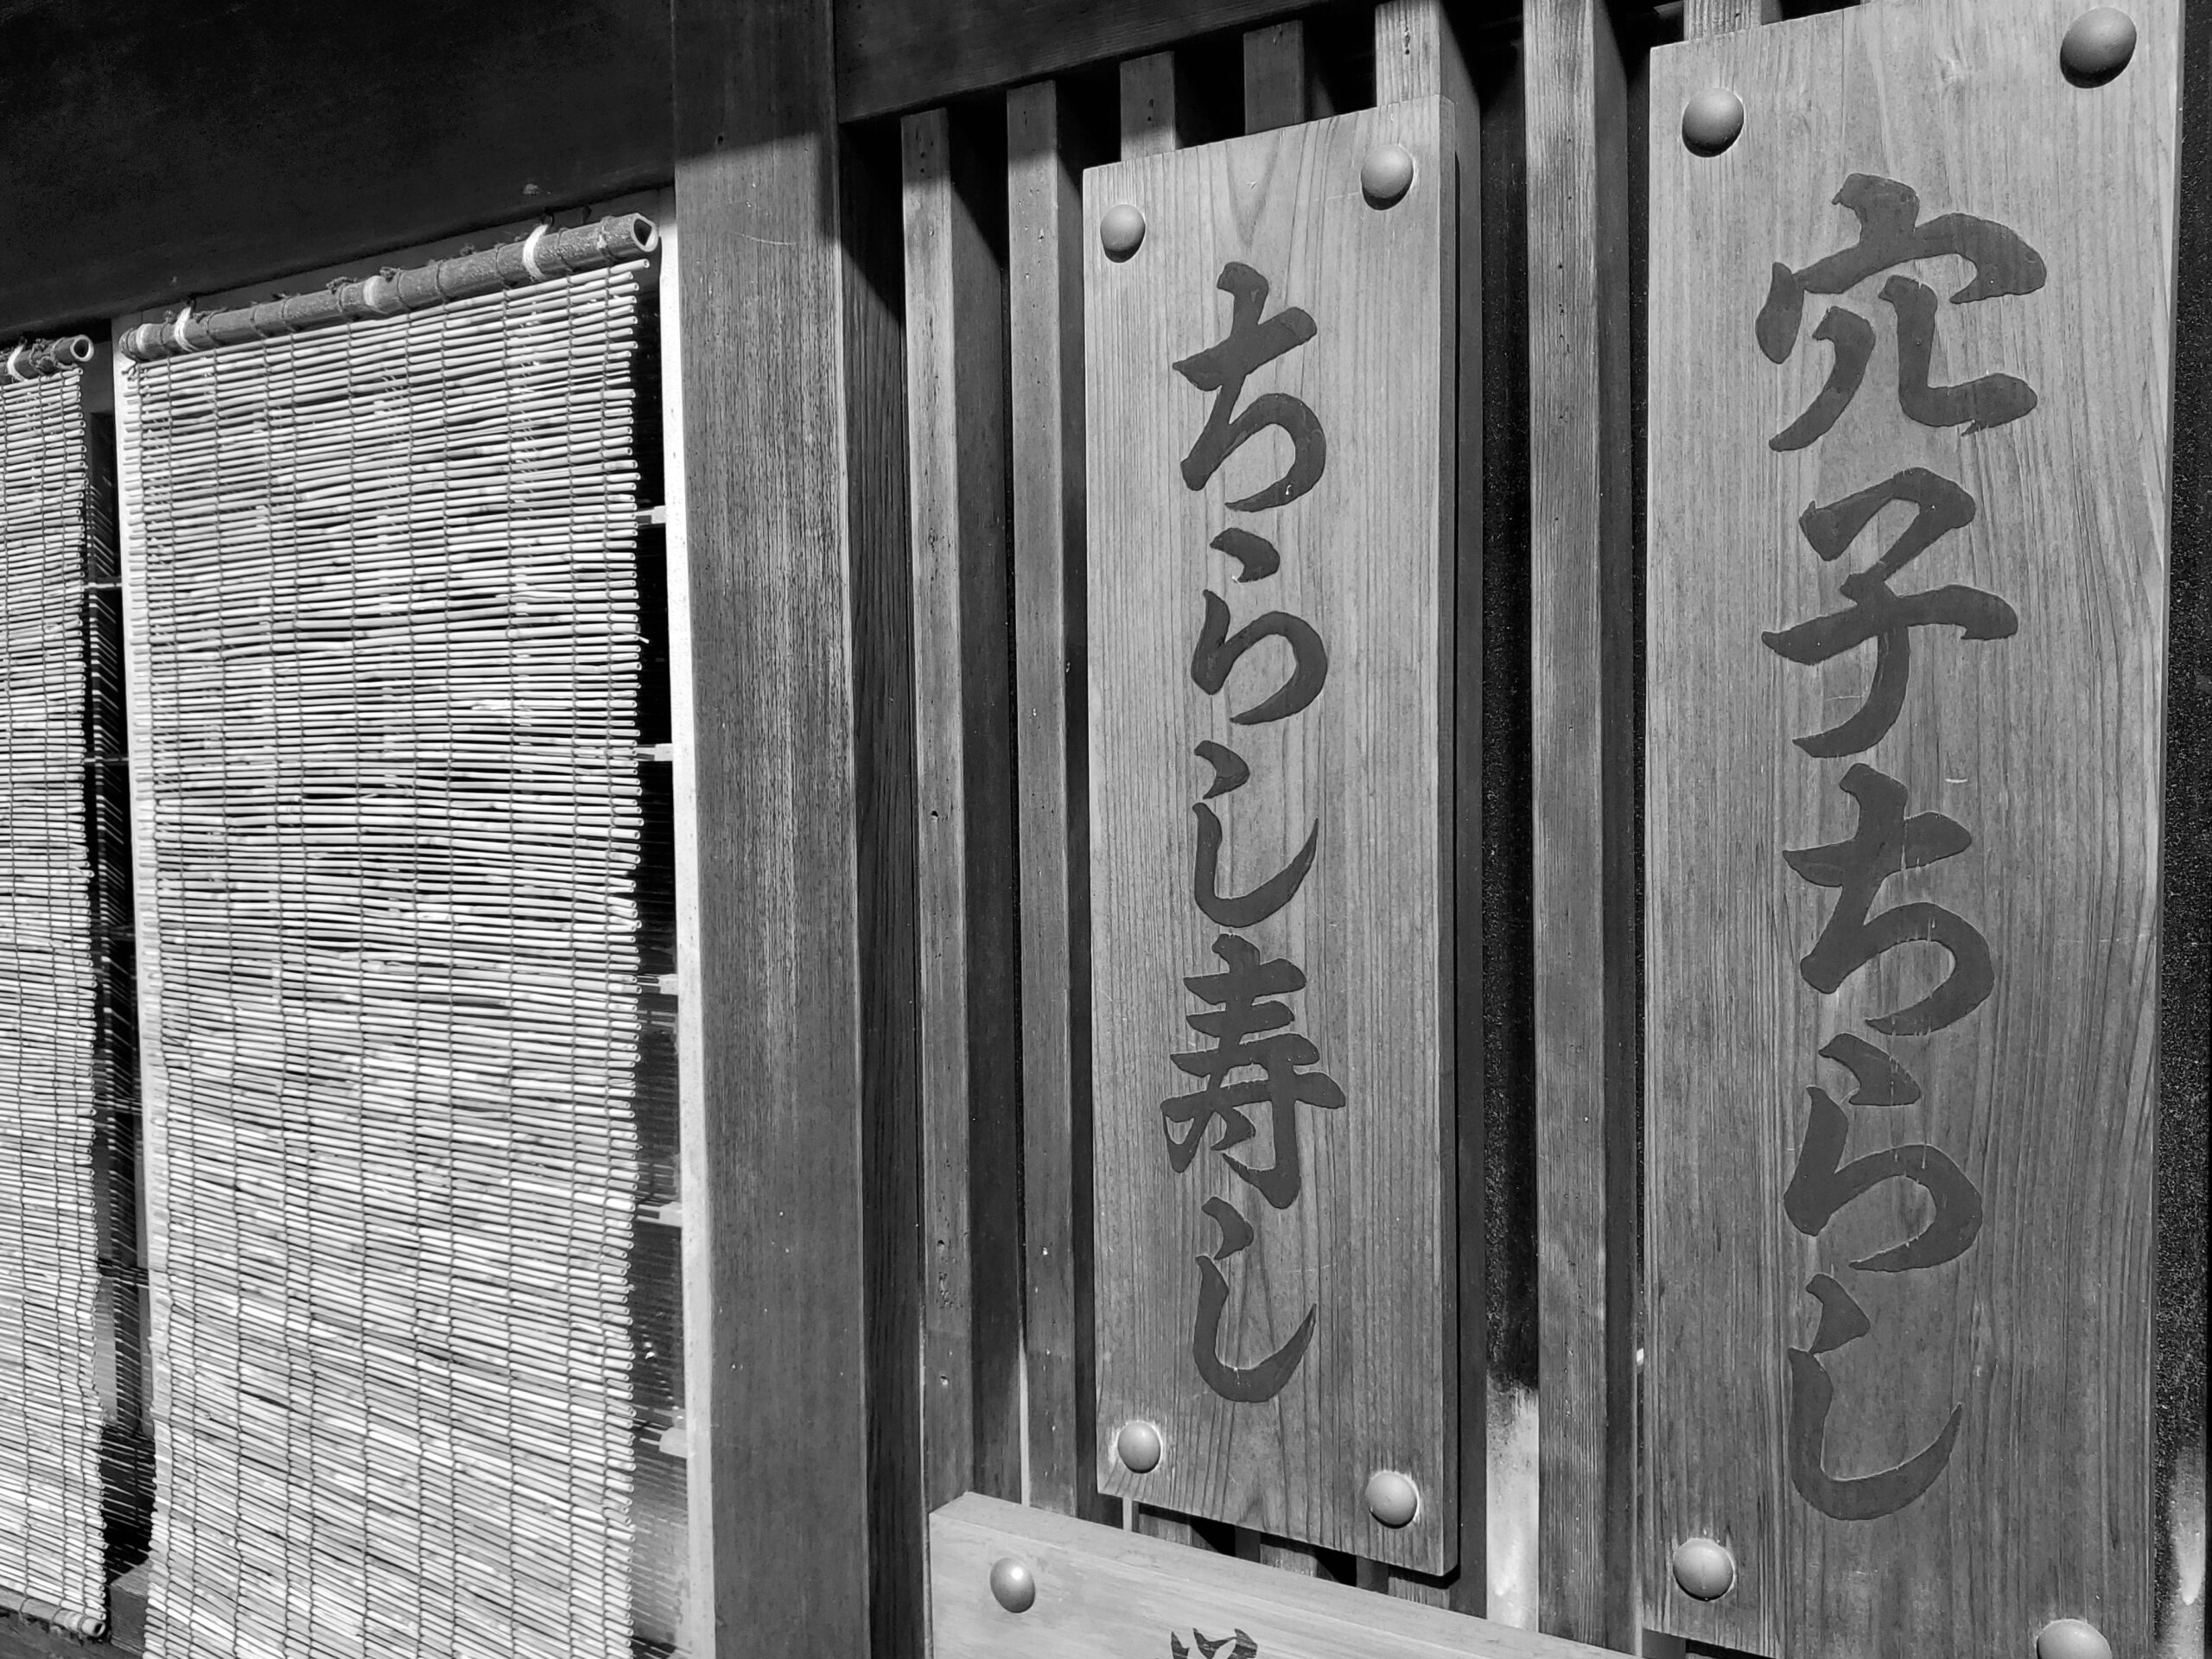 穴子ちらし
ちらし寿し